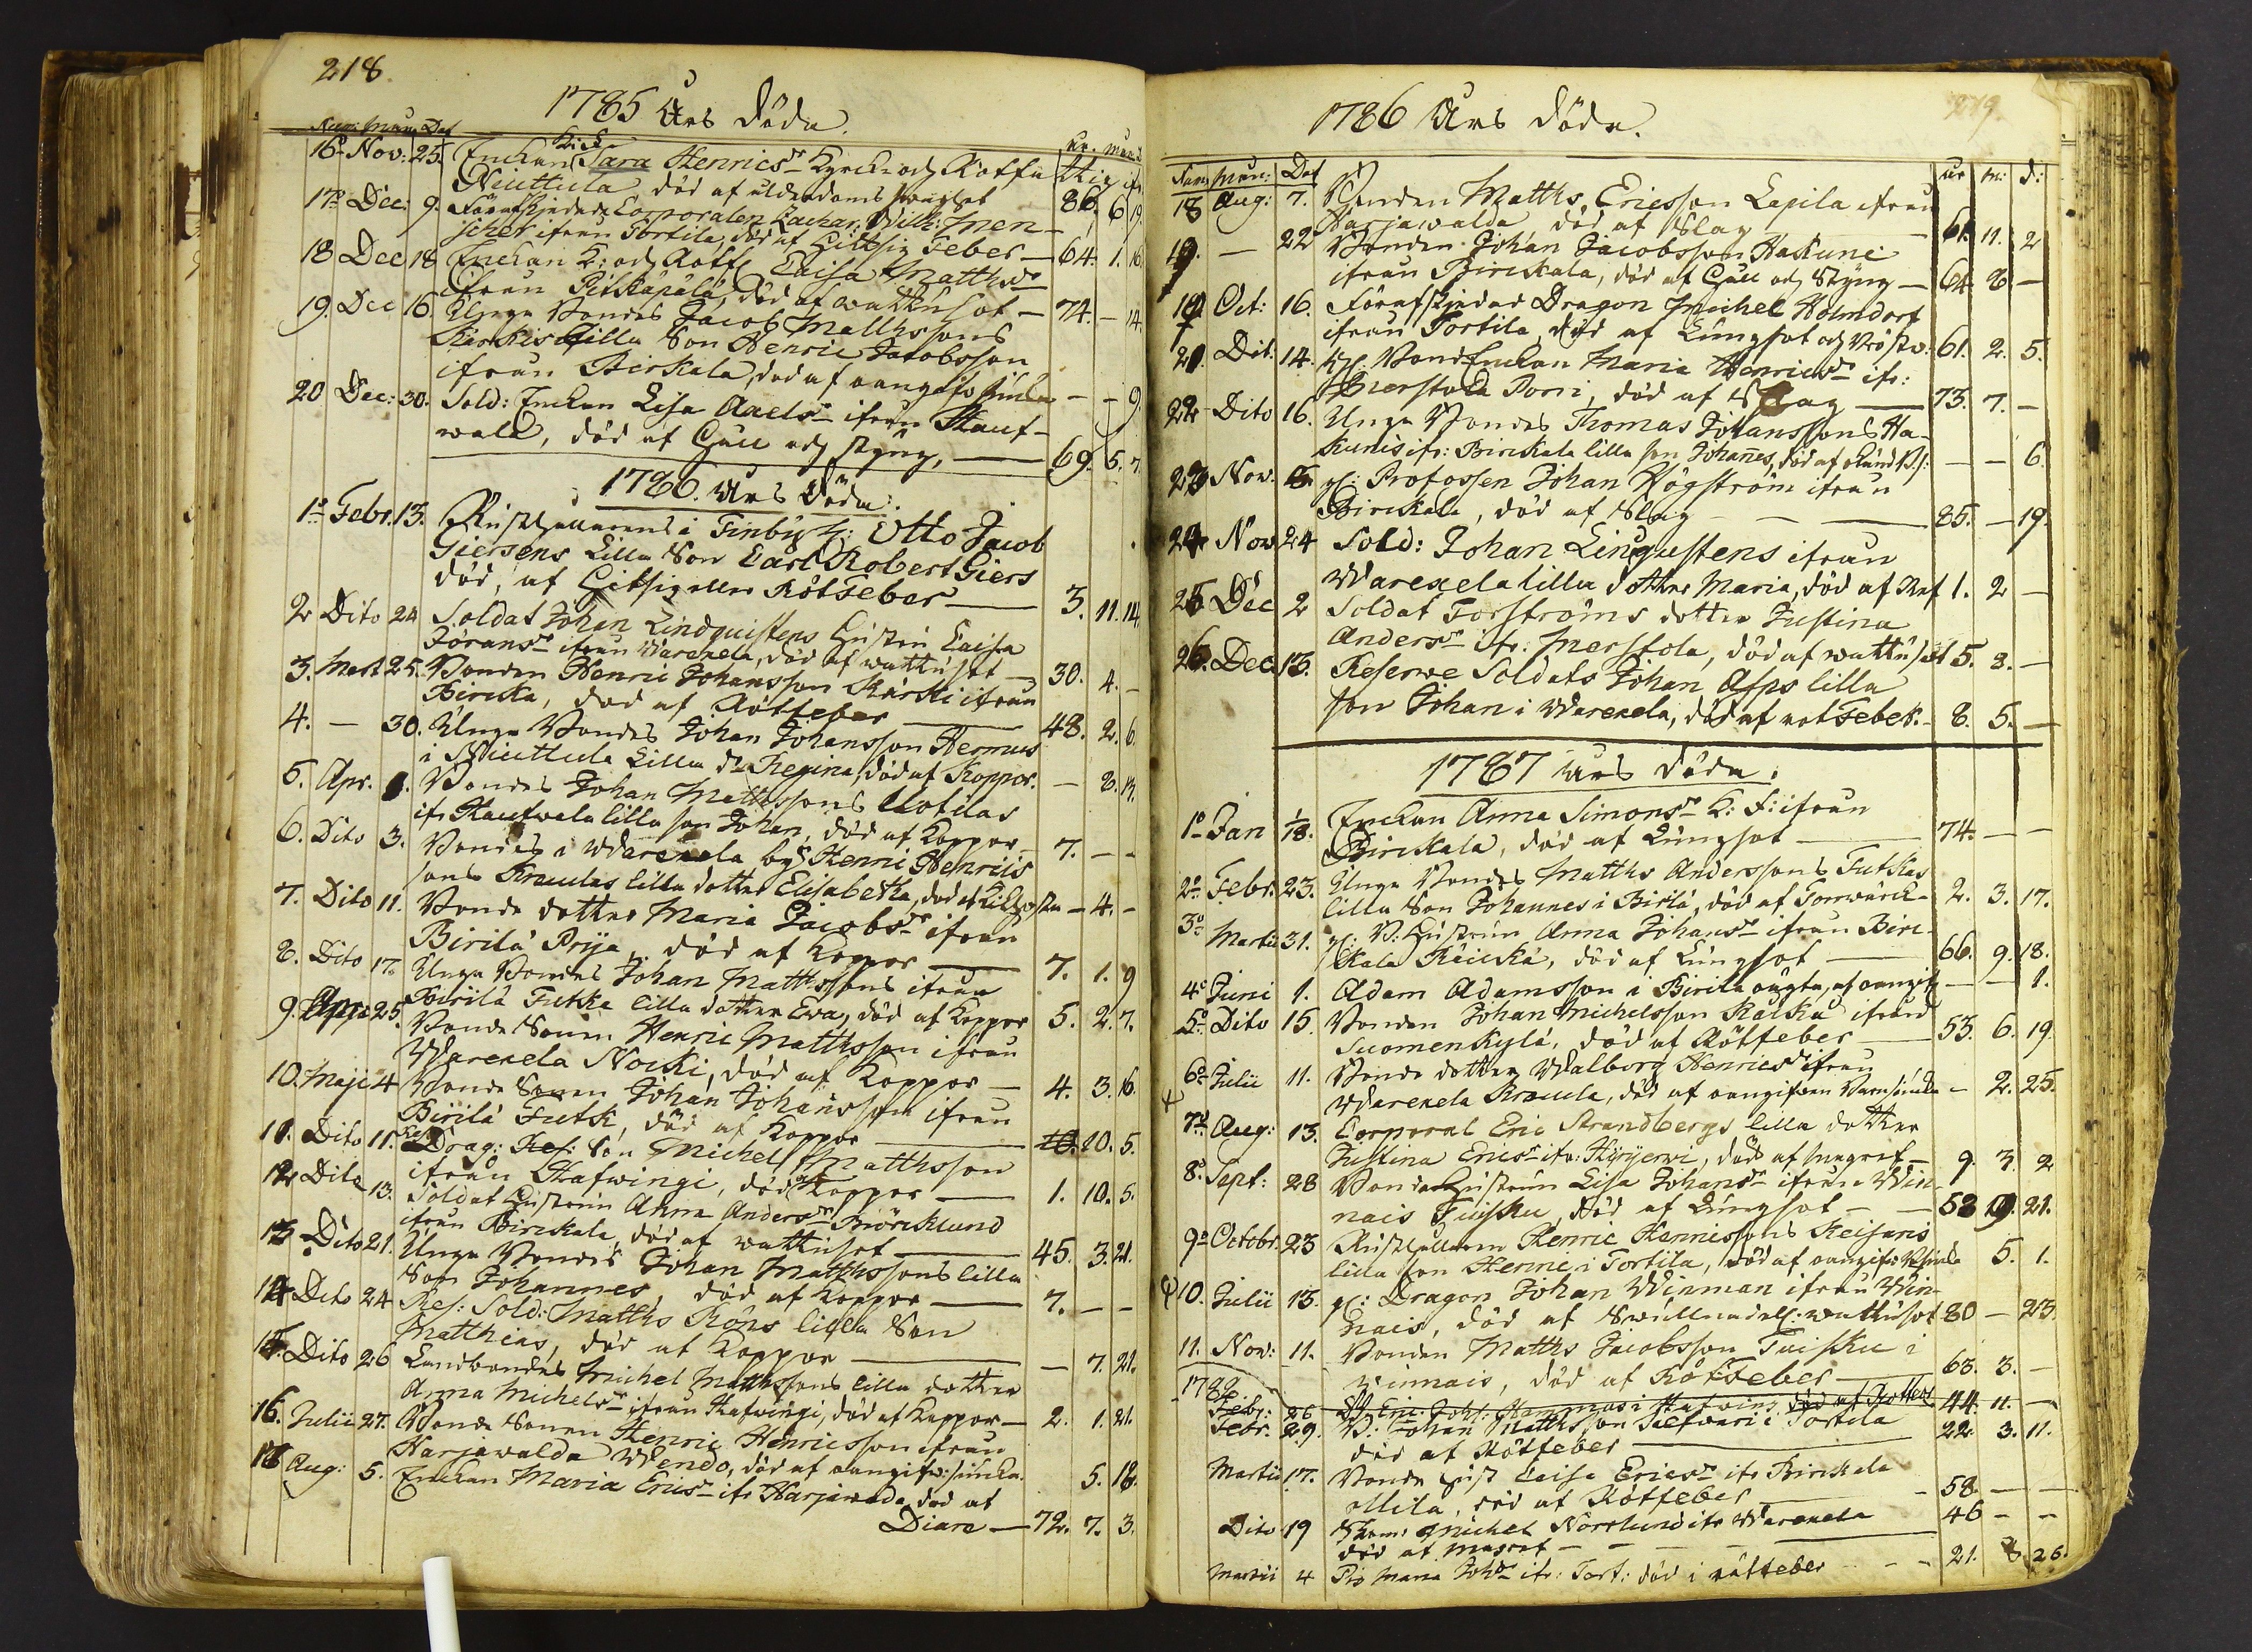 218.
1785 Års döda.
Num: Mån: Dat
År. Mån. d.
K: F
16º Nov: 25. Enckan Sara Henricsdr Kyrck: och Rotfattig ifr.
Niuttula död af ålderdoms svaghet 86. 6 19.
17º Dec: 9. Förafskjedade Corporalen Zachar: Wilh: Men-
scher ifrån Tortila, död af Hitsig Feber — 64. 1. 16.
18 Dec 18 Enckan K: och Rotf: Caisa Matthsdr
ifrån Pitkäpälä, död af wattusot — 74. — 14.
19. Dec 16. Unga Bondes Jacob Matthssons
Kärkis lilla Son Henric Jacobsson
ifrån Birkala, död af oangifw: siuka — — 9.
20 Dec: 30. Sold: Enckan Lisa Axelsdr ifrån Stauf-
wala, död af Håll och styng, — 69. 5. 7.
1786. Års döda.
1º Febr. 13. Rusthållarens i Finby H: Otto Jacob
Giersens Lilla Son Carl Robert Giers
död, af Hitsig eller RötFeber — 3. 11. 14.
2 Dito 24 Soldat Johan Lindquistens Hustru Caisa
Jöransdr ifrån Warexela, död af wattusot — 30. 4. —
3. Mart 25. Bonden Henric Johansson Kärki ifrån
Birckala, död af Rötfeber — 48. 2. 6.
4. — 30. Unga Bondes Johan Johansson Hermus
i Niuttula Lilla dr Regina, död af Koppor. — 8. 14.
5. Apr. 1. Bondes Johan Matthssons Uotilas
ifr Kaufwala lilla son Johan, död af Koppor — 7. — —
6. Dito 3. Bondes i Warexela by Henric Henrics
sons Kroulas lilla dotter Elisabetha, död af Kikhosta — 4. —
7. Dito 11. Bonde dotter Maria Jacobsdr ifrån
Birilä Prija, död af Koppor — 7. 1. 9
8. Dito 17. Unga Bondes Johan Matthssons ifrån
Birilä Futka lilla dotter Ewa, död af Koppor 5. 2. 7.
9. Apr: 25. Bonde Sonen Henric Matthsson ifrån
Warexela Nocki, död af Koppor — 4. 3. 16.
10. Maji 4 Bonde Sonen Johan Johansson ifrån
Birilä Futk, död af Koppor — 10. 5.
11. Dito 11. Drag: Ref: Son Michel Matthsson
ifrån Hafwingi, död af Koppor — 1. 10. 5.
12 Dito 13. Soldat Hustrun Anna Andersdr Biörcklund
ifrån Birckala, död af wattusot — 45. 3. 21.
13 Dito 21. Unga Bondes Johan Matthssons lilla
Son Johannes, död af Koppor — 7. — —
14 Dito 24 Ref: Sold: Matths Röns lilla Son
Matthias, död af Koppor — — 7. 21.
15. Dito 26 Landbondes Michel Matthssons lilla dotter
Anna Michelsdr ifrån Hafwingi, död af Koppor — 2. 1. 21.
16. Julii 27. Bonde Sonen Henric Henricsson ifrån
Harjawalda Wendo, död af oangifw: siuka. 5. 18.
17 Aug: 5. Enckan Maria Ericsdr ifr Harjawada död af
Diare — 72. 7. 3.
1786 Års döda.
219.
Num Mån: Dat år m: d:
18 Aug: 7. Bonden Matths, Ericsson Lepila ifrån
Harjawalda död af Slag — 61. 11. 2
19. — 22 Bonden Johan Jacobsson Hakuni
ifrån Birckala, död af Håll och Styng — 64 8 —
19. Oct: 16. Förafskjedad Dragon Michel Holmdorf
ifrån Tortila, död af Lungsot och Bröstw: 61. 2. 5.
21. Dit. 14. gl: BondEnckan Maria Henricsdr ifr:
Merstola Porri, död af Slag — 73. 7. —
22 Dito 16. Unga Bondes Thomas Johanssons Ha-
kunis ifr: Birckala lilla son Johanes, död af okänd s: — — 6.
23 Nov. gl: Profossen Johan Högström ifrån
Birckala, död af Slag — 85. — 19.
24 Nov 24 Sold: Johan Linqustens ifrån
Warexela lilla dotter Maria, död af Rof 1. 2 —
25 Dec 2 Soldat Forströms dotter Justina
Andersdr ifr: Merstola, död af wattusot 5. 8. —
26. Dec. 13. Reserwe Soldats Johan Asps lilla
son Johan i Warexela, död af rotFeber. — 8. 5. —
1787 Års döda.
1º Jan 18. Enckan Anna Simonsdr K: F: ifrån
Birckala, död af Lungsot — 74. — —
2º Febr. 23. Unga Bondes Matths Anderssons Futkas
lilla Son Johannes i Birilä, död af Torrwärck — 2. 3. 17.
3º Martii 31. gl: B: Hustrun Anna Johansdr ifrån Birc-
kala Räickä, död af Lungsot — 66. 9. 18.
4º Juni 1. Adam Adamsson i Birila ougta, af oangif: — — 1.
5º Dito 15. Bonden Johan Michelsson Kalska ifrån
Suomenkylä, död af Rötfeber — 53. 6. 19.
6º Julii 11. Bonde dotter Walborg Henricsdr ifrån
Warexela Kroula, död af oangifwen Barnsiuka — 2. 25.
7º Aug: 13. Corporal Eric Strandbergs lilla dotter
Justina Ericsdr ifr: Hiyjerwi, död af Magref — 9. 3. 2
8º Sept: 28 Bonde Hustrun Lisa Johansdr ifrån Win-
nais Tuisku, död af Lungsot — — 58 9. 21.
9º Octobr. 23 Rusthållaren Henric Hennissons Keisaris
lilla son Henric i Tortila, död af oangifw: B: siuka 5. 1.
10. Julii 13. gl: Dragon Johan Winman ifrån Win-
nais, död af Swullnad ell: wattusot 80 — 23.
11. Nov: 11. Bonden Matths Jacobsson Tuisku i
Winnais, död af RötFeber — 63. 3. —
1788
Febr: 26 Eric Joh: Hannus i Hafwing död af Rotfeb 44. 11. —
Febr. 29. B: Johan Matthsson Talfwari i Tortila
död af Rötfeber — 22 3. 11.
Martii 17. Bonde Hust Caisa Ericsdr ifr Birckala
Ollila, död af Rötfeber — 58 — —
Dito 19 Michel Norrlund ifr Warexela 46 — —
död af Magref — —
Martii 4 Pig Maria Johdr ifr: Tort: död i rötfeber — — 21. 8 26.